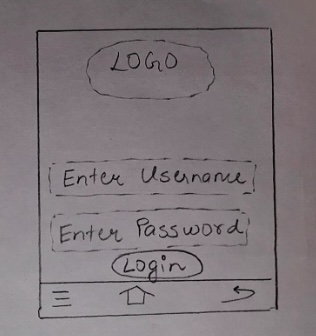 LOGO
Enter Username
Enter Password
Login